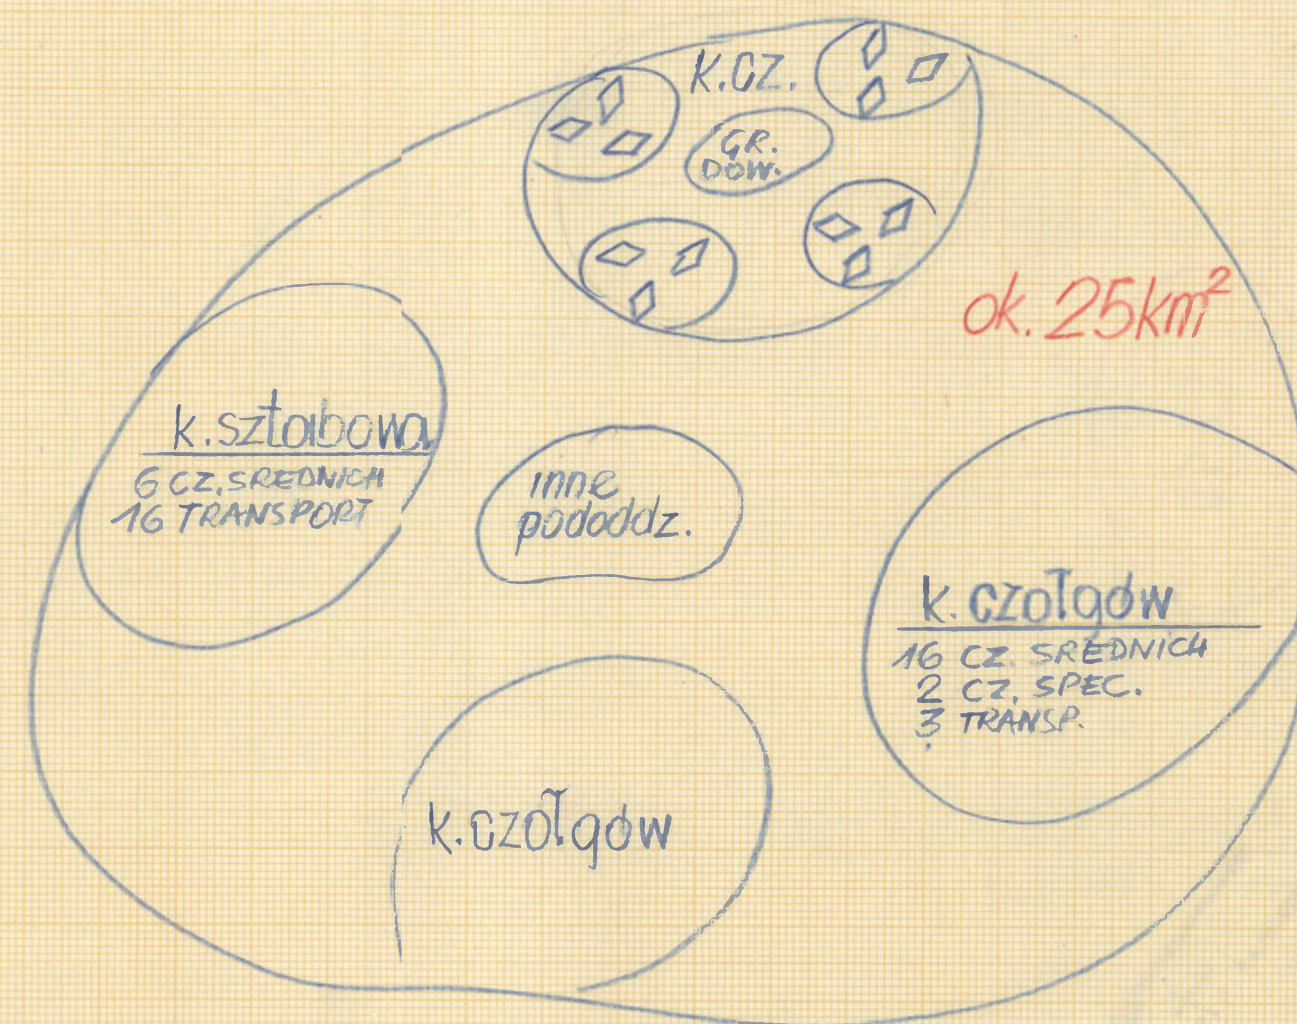 K.CZ.
GR.
DOW.
ok. 25km²
k. sztabowa
6 CZ. SREDNICH
16 TRANSPORT
inne
pododdz.
k. czołgów
16 CZ. SREDNICH
2 CZ. SPEC.
3 TRANSP.
k. czołgów